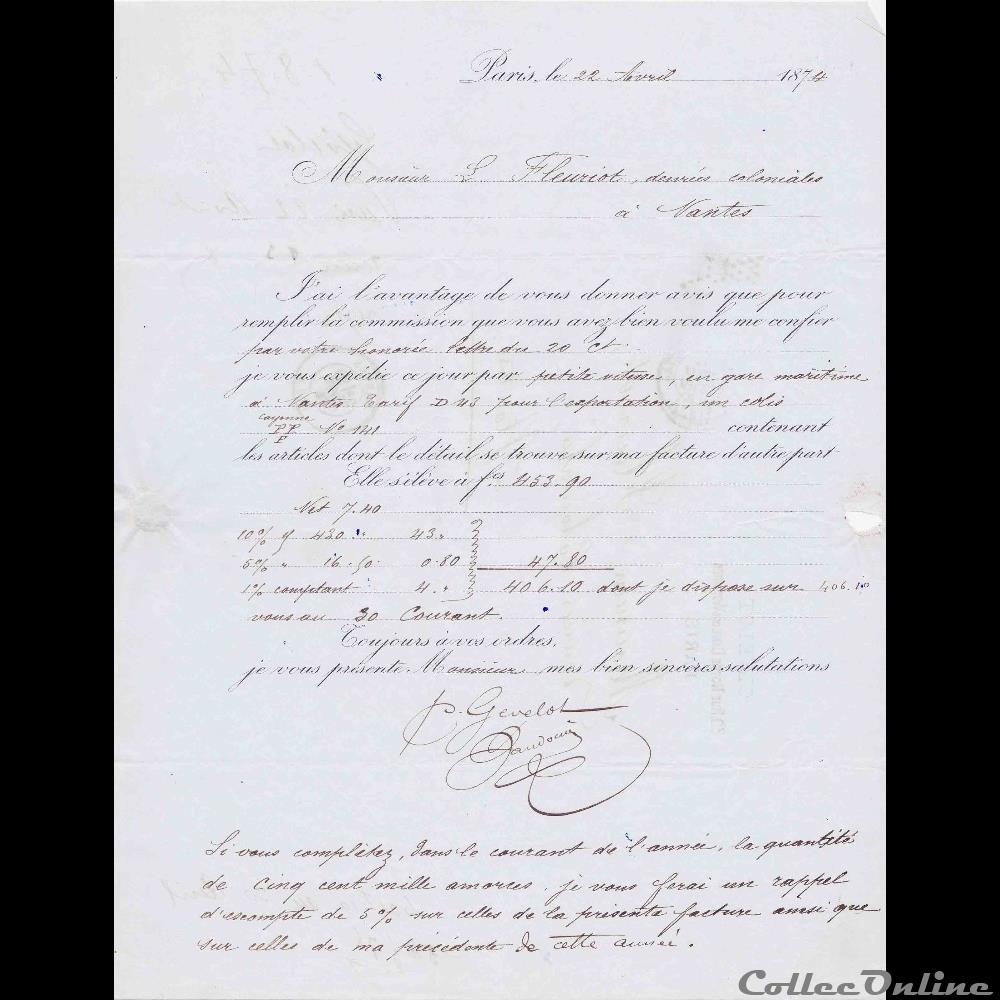 Paris, le 22 Avril 1874
Monsieur L Fleuriot, denrées coloniales
à Nantes
J'ai l'avantage de vous donner avis que pour
remplir la commission que vous avez bien voulu me confier
par votre honorée lettre du 20 Ct
je vous expédie ce jour par petite vitesse, en gare maritime
à Nantes Tarif D 43 pour l'exportation, un colis
Cayenne
PP No 141 contenant
F
les articles dont le détail se trouve sur ma facture d'autre part
Elle s'élève à fcs 453.90
Net 7.40
10% s/ 430 " 43 "
5% " 16.50 0.80 47.80
1% comptant 4 " 406.10 dont je dispose sur 406.10
vous au 30 Courant.
Toujours à vos ordres,
je vous présente Monsieur mes bien sincères salutations
p. Gevelot
Si vous complétez, dans le courant de l'année, la quantité
de Cinq cent mille amorces, je vous ferai un rappel
d'escompte de 5% sur celles de la présente facture ainsi que
sur celles de ma précédente de cette année.
CollecOnline